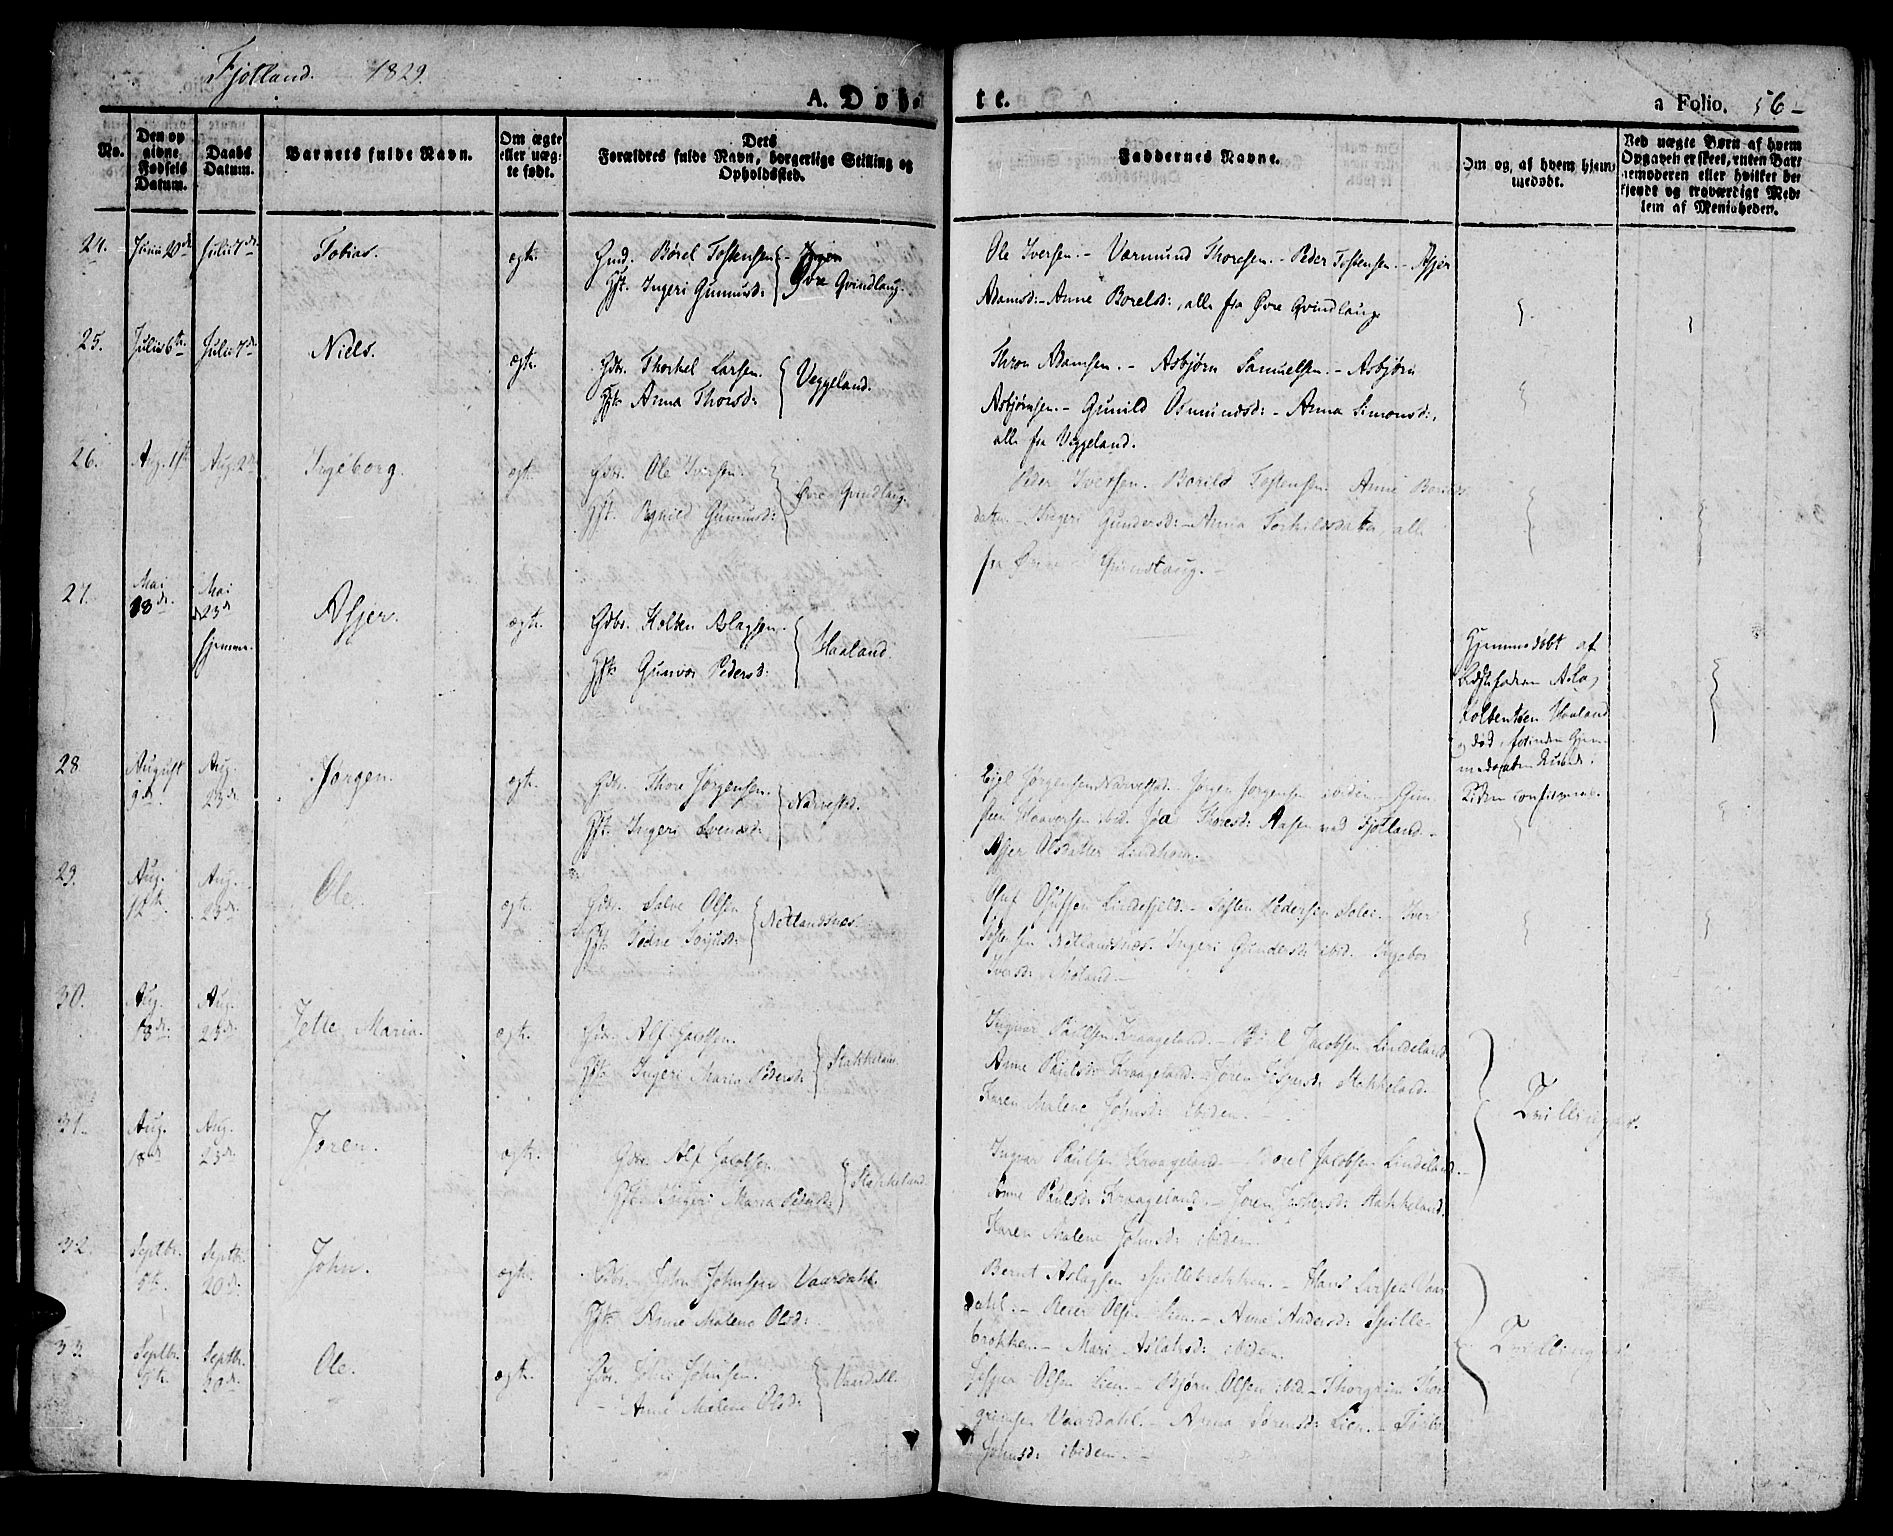 Fjotland. 1829.
A. Døbte.
a Folio. 56
No.
Den op
givne
Fødsels
Datum.
Daabs
Datum.
Barnets fulde Navn.
Om ægte
eller uæg-
te født.
Dets
Forældres fulde Navn, borgerlige Stilling og
Opholdssted.
Faddernes Navne.
Om og, af hvem hjem-
medøbt.
Ved uægte Børn af hvem
Opgaven er skeet, enten Bar-
nemoderen eller hvilket be-
kjendt og troværdigt Med-
lem af Menigheden.
24. Junii 20de Julii 7de Tobias. ægte. Gmd. Børel Tostensen
Hst. Ingeri Gumunsd: Øvre Qvindlaug.
Ole Iversen. - Varmund Thoresen. - Peder Tostensen. - Asjer
Adamsd: - Anne Borelsd:, alle fra Øvre Qvindlaug
25. Julii 6te Julii 7de Niels. ægte. Gdbr. Thorkel Larsen.
Hst. Anna Thorsd: Veggeland.
Thron Adamsen. - Asbjørn Samuelsen. - Asbjørn
Asbjørnsen. - Gunild Osmundsd: - Anna Simonsd:,
alle fra Veggeland.
26. Aug. 1ste Aug. 2de Ingeborg. ægte. Gdbr. Ole Iversen.
Hst. Ragnild Gumunsd: Øvre Qvindlaug.
Peder Iversen. Borild Tostensen. Anne Borels
datter - Ingeri Gundersd: - Anna Torkildsdatter, alle
fra Øvre Qvindlaug. -
27. Mai 18de. Mai 23de hjemme. Asjer. ægte. Gdbr. Kolben Aslagsen.
Hst. Gunvor Pedersd: Haaland.
Hjemmedøbt af
Bedstefaderen Aslag
Kolbentsen Haaland
og død, forinden Hjem-
medaaben
confirmeret.
28. August 9de. Aug. 23de. Jørgen. ægte. Gdbr. Thore Jørgensen.
Hst. Ingeri Svensd: Narvestad.
Eigel Jørgensen Narvestad. Jørgen Jørgensen ibiden. - Gun-
Haaversen ibid. Thoresd: Aasen ved Fjotland. -
Asjer Olsdatter
29. Aug. 12te Aug. 23de. Ole. ægte. Gdbr. Salve Olsen
Hst. Netlandsnæs.
Olsen Lindefjeld. - Tosten Pedersen - Iver
Tostensen Netlandsnæs. Ingeri Gundersd: ibid. - Ingebor
Iversd: -
30. Aug. 18de. Aug. 23de. Jette Maria. ægte. Gdbr. Alf Jacobsen.
Hst. Ingeri Maria Pedersd: Stakkeland.
Ingvar Paulsen Kraageland. - Jacobsen Lindeland
Anne Paulsd: Kraageland. - Joren Jespersd: Stakkeland.
Karen Malene Johnsd: ibiden. -
Tvillinger.
31. Aug. 18de Aug. 23de. Joren. ægte. Gdbr. Alf Jacobsen
Hst. Ingeri Maria Pedersd: Stakkeland
Ingvar Paulsen Kraageland. - Borel Jacobsen Lindeland. -
Anne Paulsd: Kraageland. - Joren Jespersd: Stakkeland.
Karen Malene Johnsd: ibiden.
32. Septbr. 9te. Septbr. 20de. John. ægte. Gdbr. John Johnsen Vaardahl.
Hst. Anne Malene Olsd:
Bernt Aslagsen Spillebrokken. - Hans Larsen Vaar-
dahl. - Reier Olsen Lien. - Anne Andersd: Spille-
brokken. - Mari Aslaksd: ibiden.
Tvillinger.
33. Septbr. 9te. Septbr. 20de. Ole. ægte. Gdbr. John Johnsen.
- Anne Malene Olsd: Vaardahl.
Jesper Olsen Lien. - Bjørn Olsen ibid. - Thorgrim Thor-
grimsen Vaardahl. - Anna Sørensd: Lien. -
Johnsd: ibidem. -